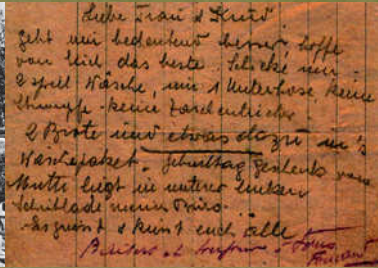 Liebe Frau & Kind.
Geht mir bedeutend besser, hoffe
von Euch das beste. Schicke mir
2 Wäsche, nur 1 Unterhose, keine
Strümpfe - keine Taschentücher.
2 Brote und etwas dazu in's
Waschepaket. Geburtstag Geschenk von
Mutti liegt in unterer linken
Schublade meines
Es grüsst & küsst euch alle